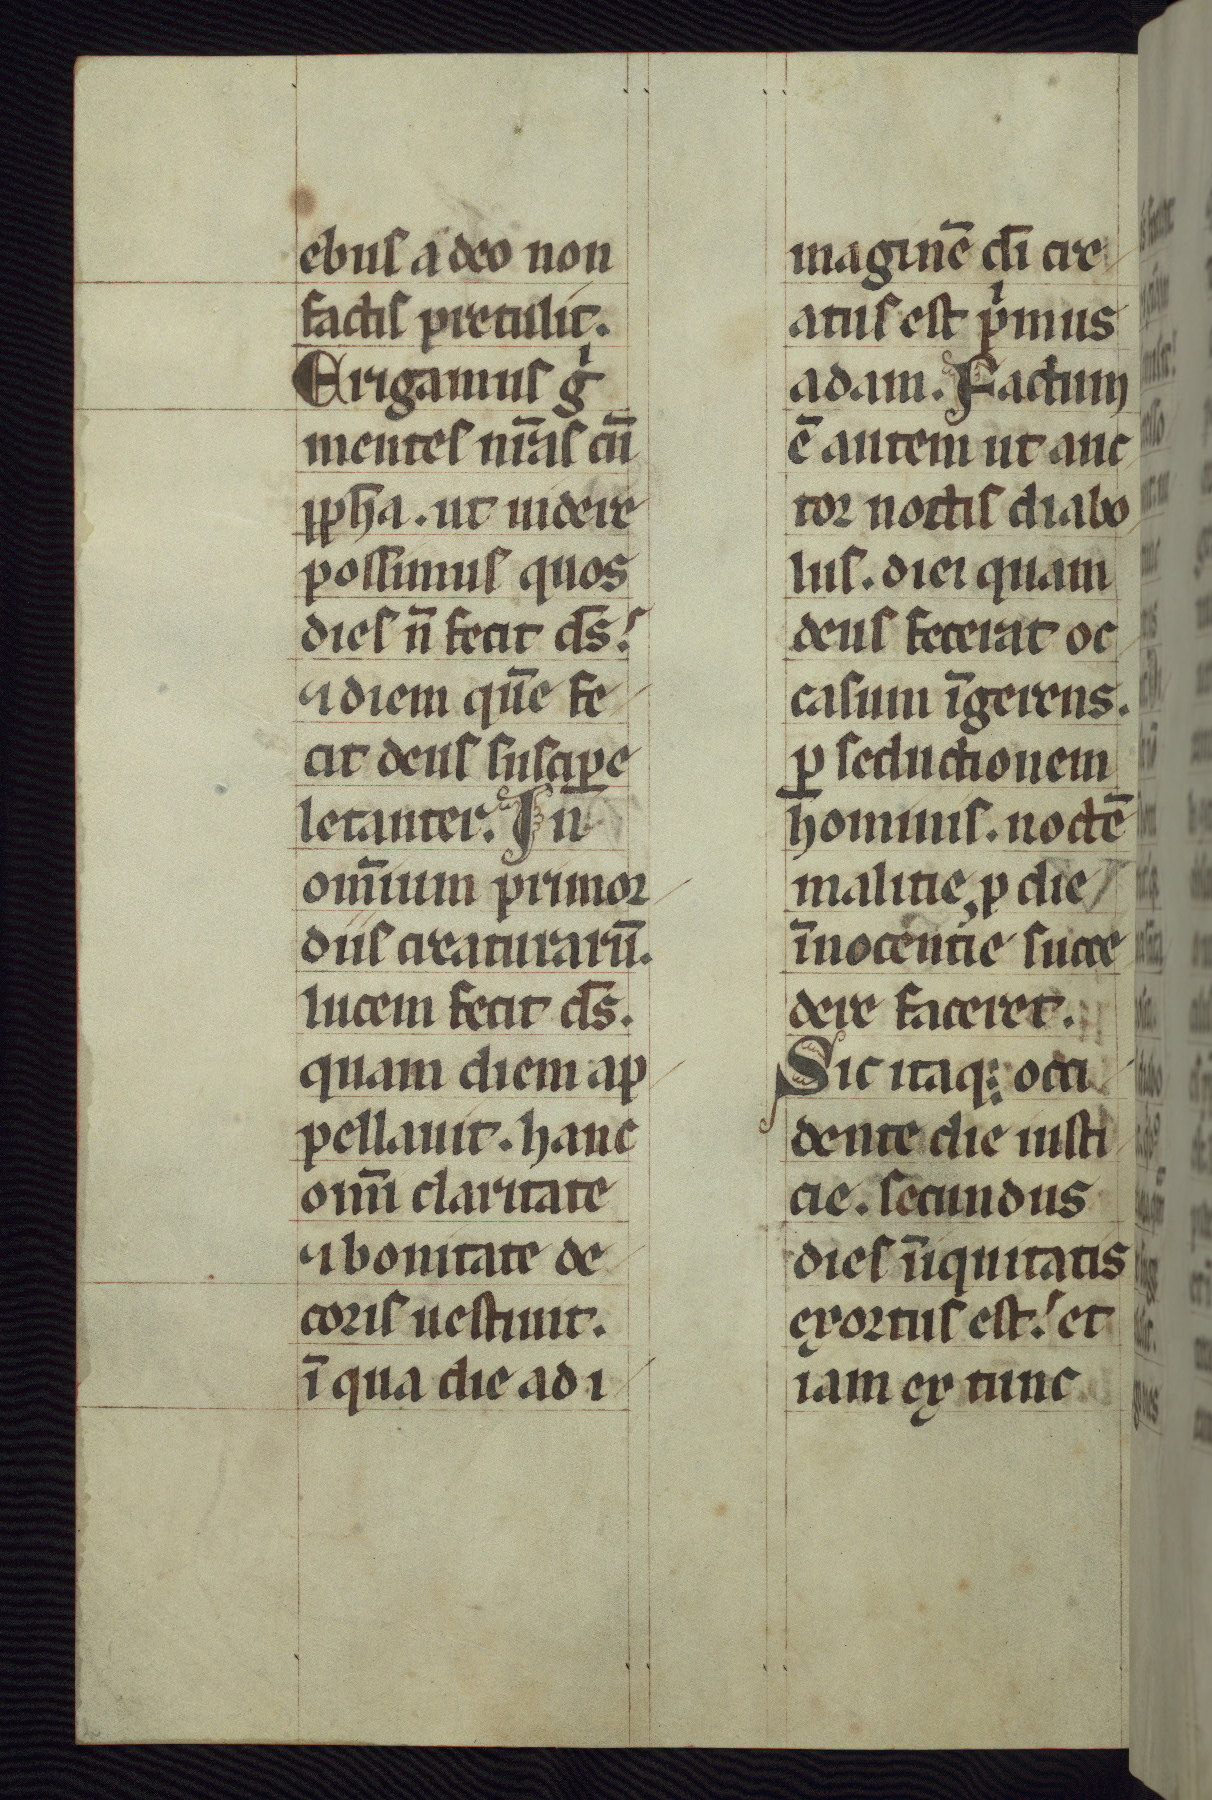 ebus a deo non
factis pretulit.
Erigamus gͥ
mentes nr̄as cū
ꝓph̄a. ut uidere
possimus quos
dies n̄ fecit ds̄.
⁊ diem que̅ fe
cit deus suscipe
letanter. In
om̄ium primor
diis creaturarū.
lucem fecit ds̄.
quam diem ap
pellauit. hanc
om̄i claritate
⁊ bonitate de
coris uestiuit.
ī qua die ad i
maginē di̅ cre
atus est pͥmus
adam. Factum
ē autem ut auc
tor noctis diabo
lus. diei quam
deus fecerat oc
casum īgerens.
ꝑ seductionem
hominis. noctē
malitie, ꝓ die
īnocentie succe
dere faceret.
Sic itaqꝫ occi
dente die iusti
cie. secundus
dies īiquitatis
exortus est. et
iam ex tunc